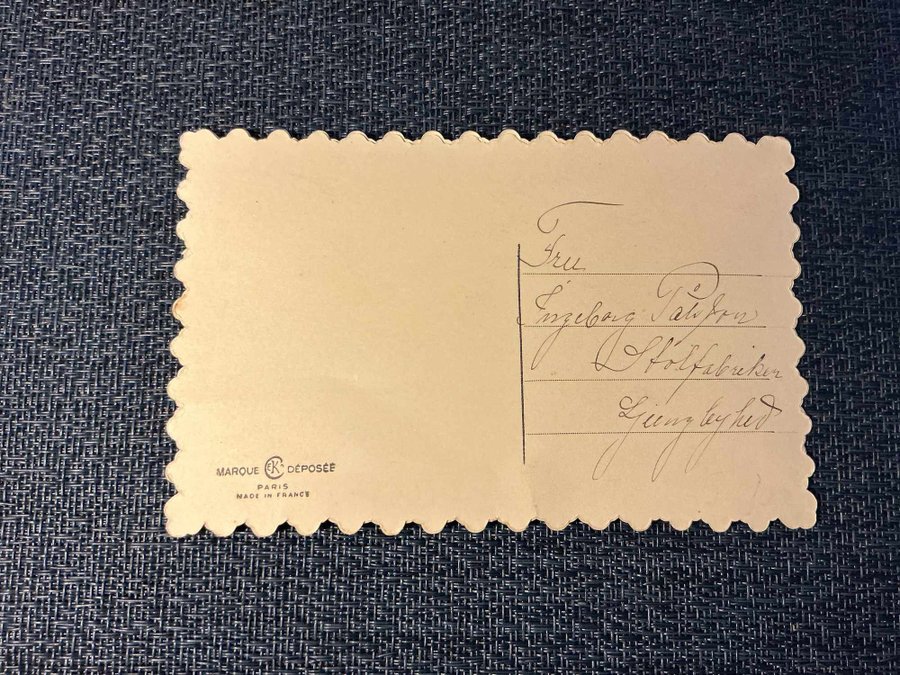 Fru
Ingeborg Pålsson
Stolfabriken
Ljungbyhed
MARQUE EKC DÉPOSÉE
PARIS
MADE IN FRANCE